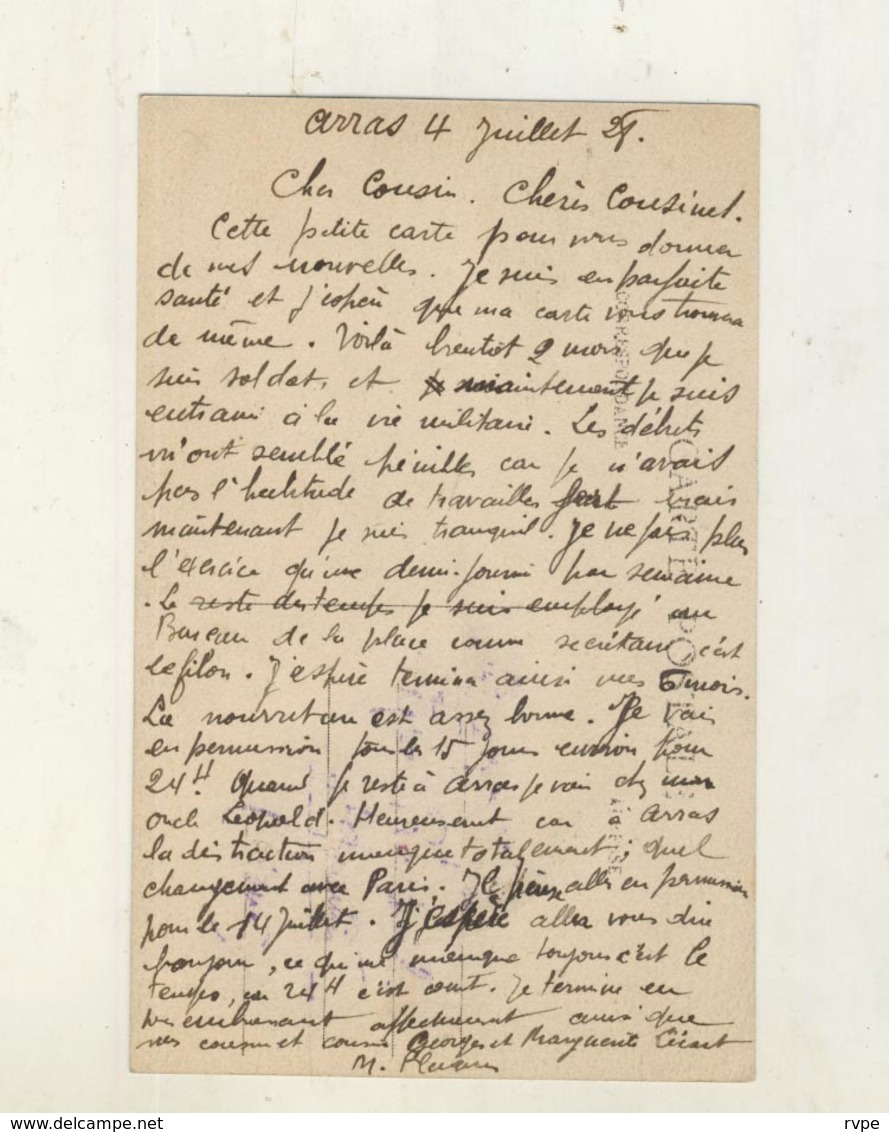 Arras 4 Juillet
Cher Cousin. Cherès Cousinet.
Cette petite carte pour vous donner
de mes nouvelles. Je suis en parfaite
santé et j'espère que ma carte vous trouvera
de même. Voilà bientot 2 mois que je
suis soldat, et maintenant je suis
entrainé à la vie militaire. Les débuts
m'ont semblé pénibles car je n'avais
pas l'habitude de travailler mais
maintenant je suis tranquil. Je ne fais plus
l'exercice qu'une demi-journée par semaine
. Le reste du temps je suis employé au
Bureau de la place comme secrétaire, c'est
le filon. J'espère terminer ainsi mes 6 mois.
La nourriture est assez bonne. Je vais
en permission tous les 15 jours environ pour
24H. Quand je reste à Arras je vais chez mon
oncle Léopold. Heureusement car à Arras
la distraction manque totalement ; quel
changement avec Paris. Je pense aller en permission
pour le 14 Juillet. J'espère aller vous dire
bonjour, ce qui me manque toujours c'est le
temps, en 24H c'est court. Je termine en
vous embrassant affectueusement ainsi que
mes cousin et cousine Georges et Marguerite
M.
CARTE POSTALE
CORRESPONDANCE
ADRESSE
www.delcampe.net
rvpe